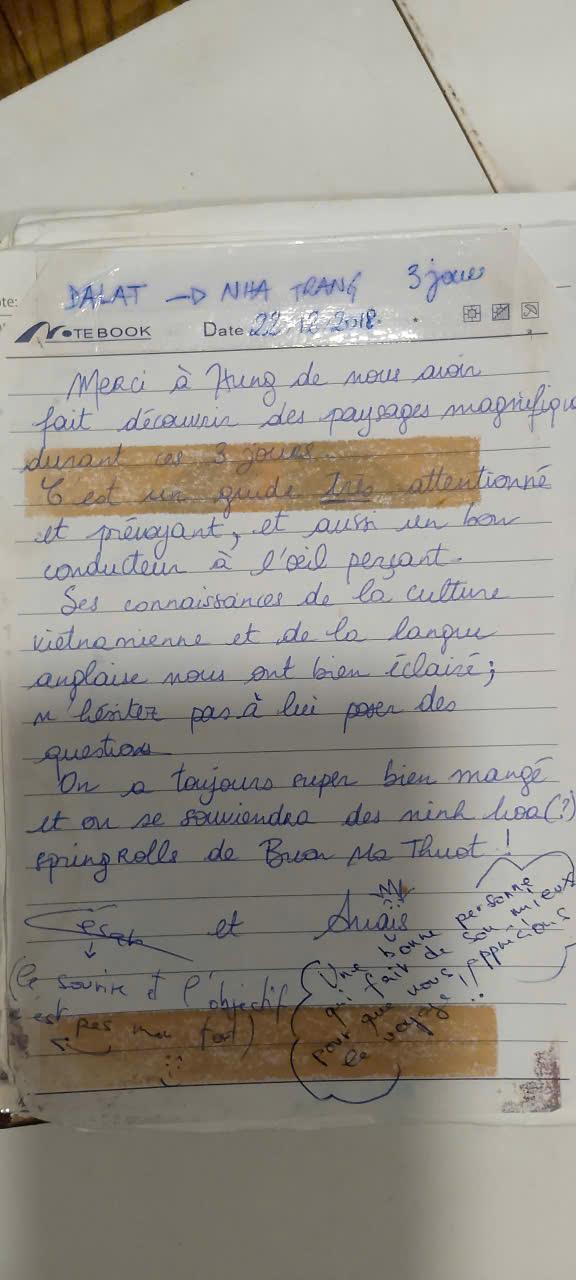 DALAT → NHA TRANG 3 jours
NOTEBOOK Date 22.12.2018
Merci à Hung de nous avoir
fait découvrir des paysages magnifiqu
durant ces 3 jours.
C'est un guide Très attentionné
et prévoyant, et aussi un bon
conducteur à l'oeil perçant.
Ses connaissances de la culture
vietnamienne et de la langue
anglaise nous ont bien éclairé;
n'hésitez pas à lui poser des
questions
On a toujours super bien mangé
et on se souviendra des ninh hoa(?)
springrolls de Buon Ma Thuot!
et Anaïs
(le sourire et l'objectif
est pas mon fort)
Une bonne personne
qui fait de son mieux
pour que nous apprécions
le voyage!